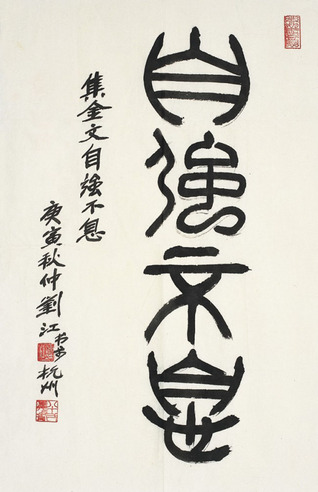 自強不息
集金文自強不息
庚寅秋仲劉江書於杭州